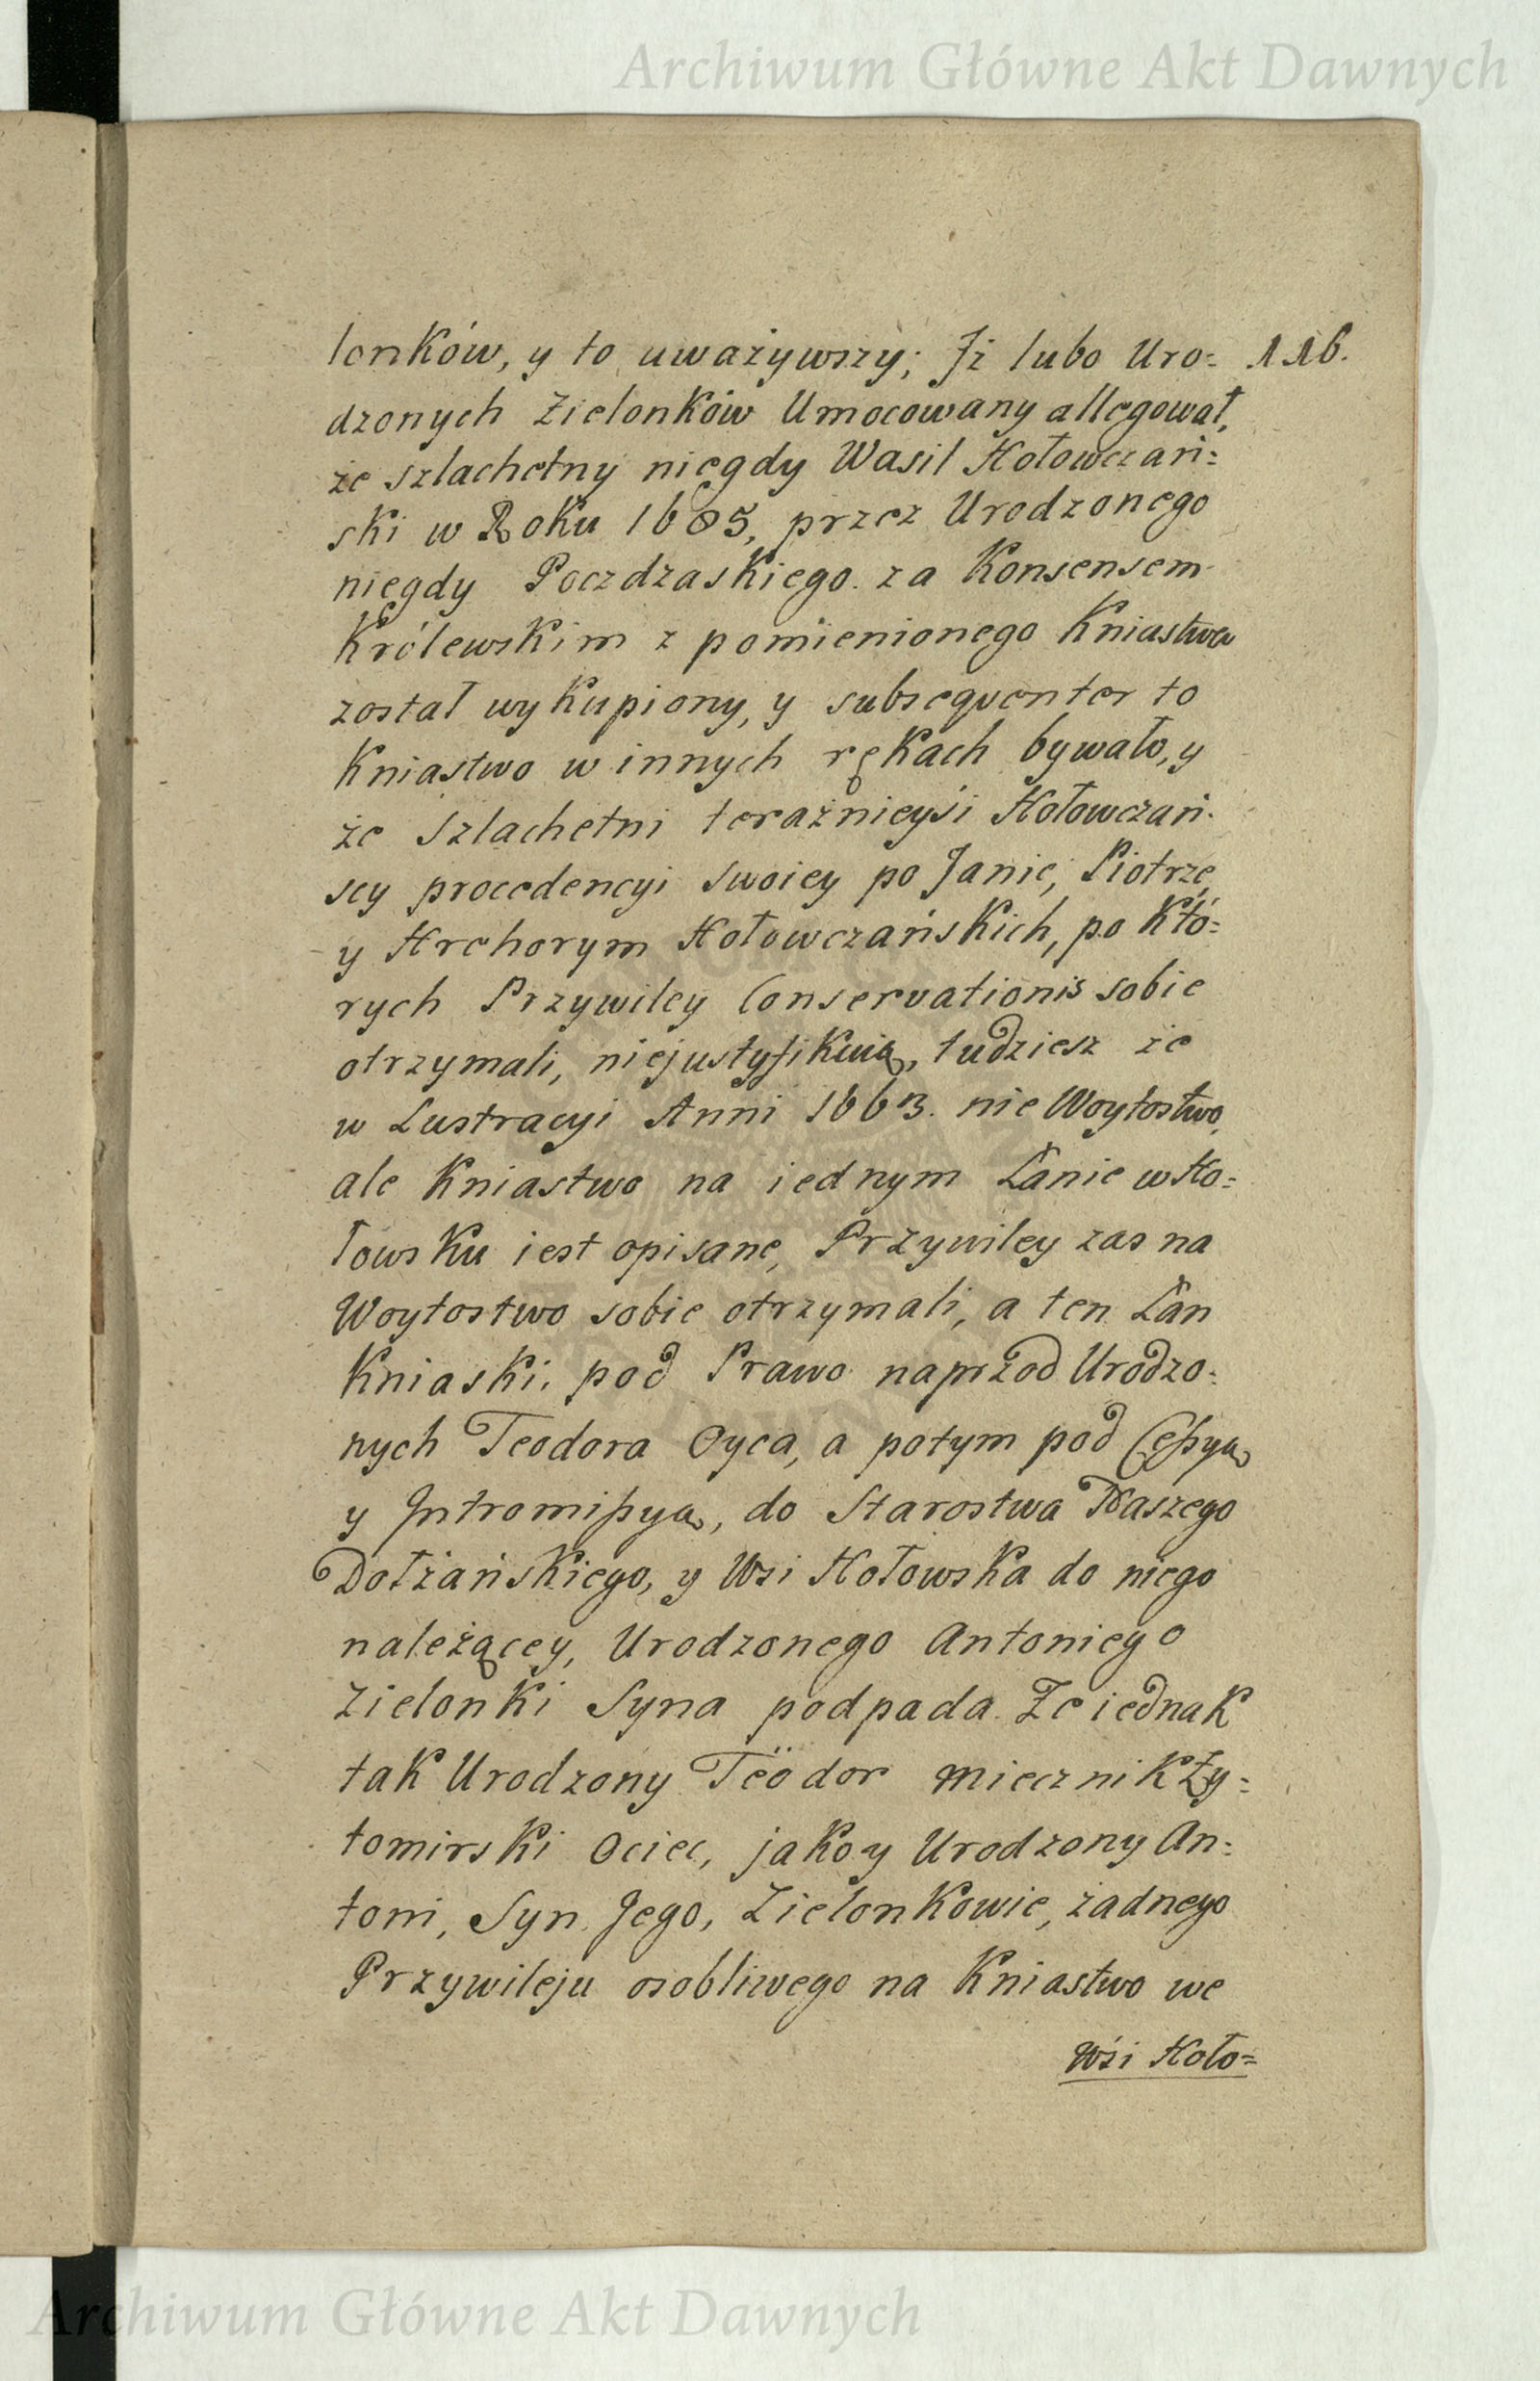 Archiwum Główne Akt Dawnych
116.
lonków, y to uważywszy; Iż lubo Uro=
dzonych Zielonków Umocowany allegował,
że szlachetny niegdy Wasil Hołowczań=
ski w Roku 1685, przez Urodzonego
niegdy Poczdzaskiego za Konsensem
Królewskim z pomienionego Kniastwa
został wykupiony, y subsequenter to
Kniastwo w innych rękach bywało, y
że Szlachetni teraźnieyśi Hołowczań=
scy procedencyi swoiey po Janie, Piotrze,
y Hrehorym Hołowczańskich, po któ=
rych Przywiley Conservationis sobie
otrzymali, niejustyfikuią, tudziesz że
w Lustracyi Anni 1663. nie Woytostwo,
ale Kniastwo na iednym Łanie w Ho=
łowsku iest opisane, Przywiley zas na
Woytostwo sobie otrzymali, a ten Łan
Kniaski, pod Prawo naprzod Urodzo=
nych Teodora Oyca, a potym pod Cessyą
y Intromissyą, do Starostwa Naszego
Dołżańskiego, y Wsi Hołowska do niego
należącey, Urodzonego Antoniego
Zielonki Syna podpada. Że iednak
tak Urodzony Teödor Miecznik Ży=
tomirski Ociec, jako y Urodzony An=
toni, Syn Jego, Zielonkowie, żadnego
Przywileju osobliwego na Kniastwo we
Wśi Hoło=
Archiwum Główne Akt Dawnych